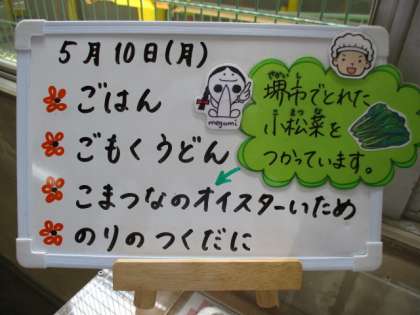 5月10日(月)
ごはん
ごもくうどん
こまつなのオイスターいため
のりのつくだに
megami
さかいし
堺市でとれた
こまつな
小松菜を
つかっています。